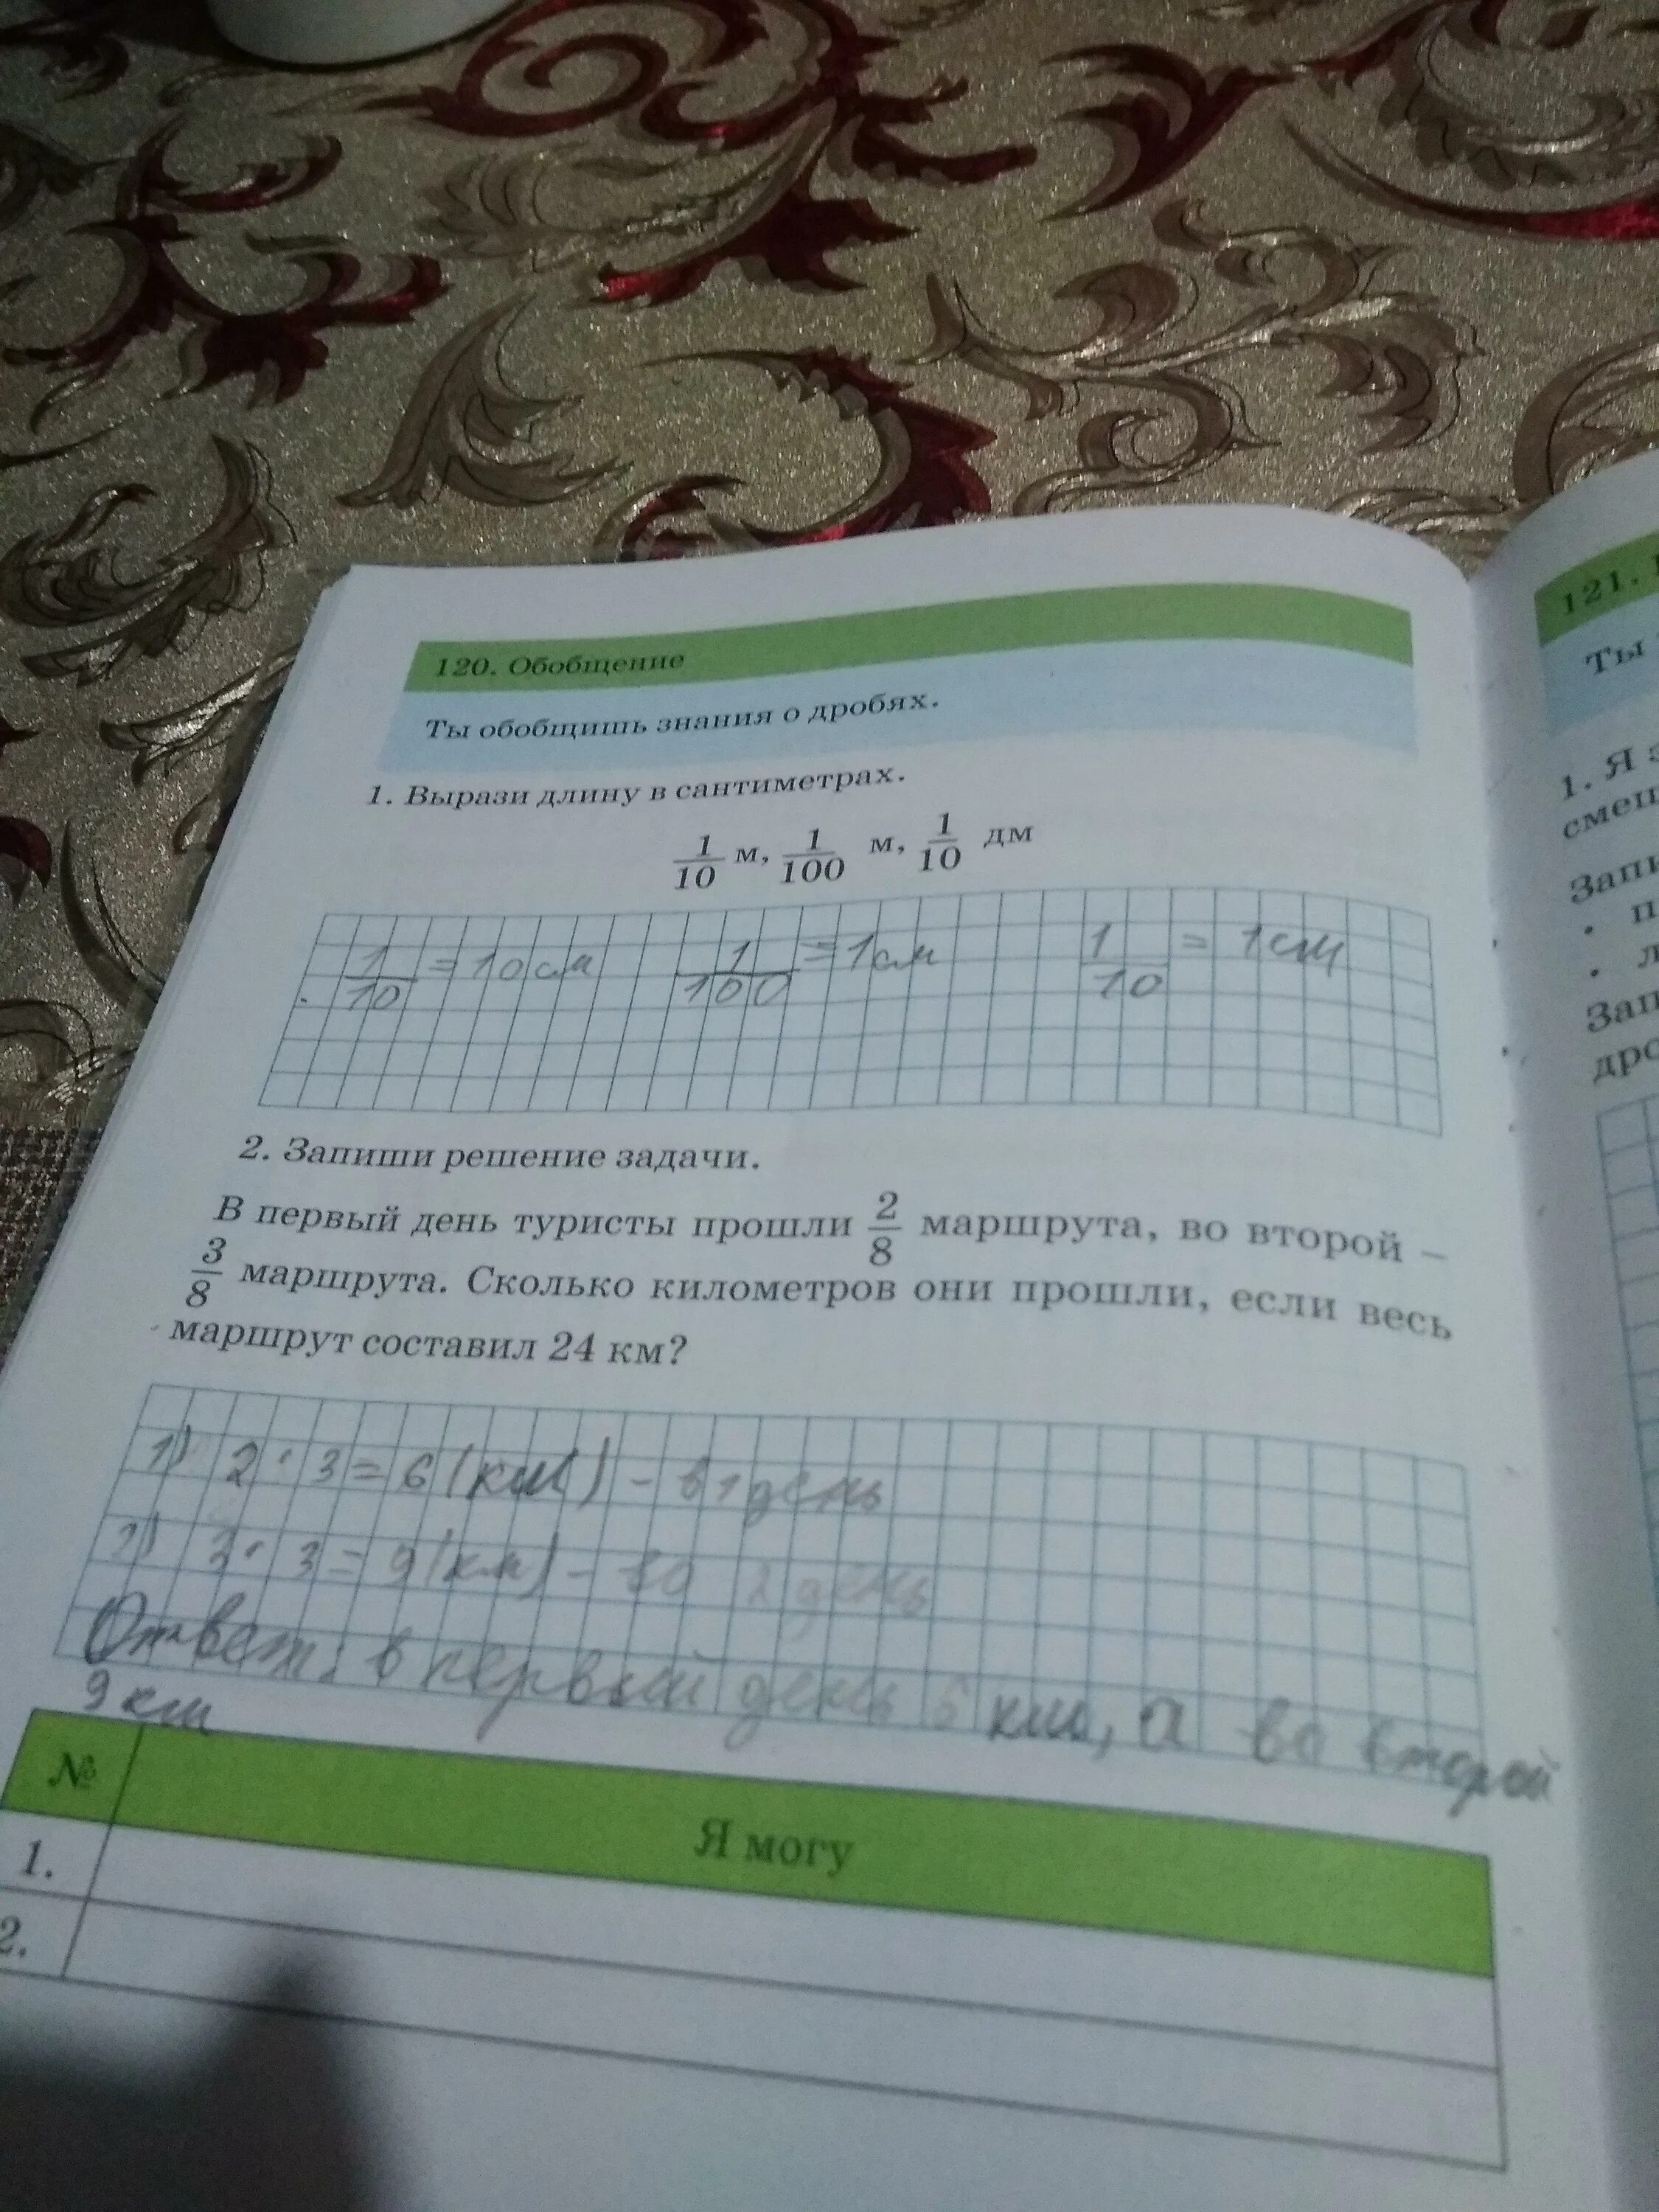 120. Обобщение
Ты обобщишь знания о дробях.
1. Вырази длину в сантиметрах.
1/10 м, 1/100 м, 1/10 дм
1/10 = 10 см 1/100 = 1 см 1/10 = 1 см
2. Запиши решение задачи.
В первый день туристы прошли 2/8 маршрута, во второй –
3/8 маршрута. Сколько километров они прошли, если весь
маршрут составил 24 км?
1) 2 · 3 = 6 (км) – в 1 день
2) 3 · 3 = 9 (км) – во 2 день
Ответ: в первый день 6 км, а во второй
9 км
№ Я могу
1.
2.
121.
Ты
1. Я
смеш
Запи
· п
· л
Зап
дро